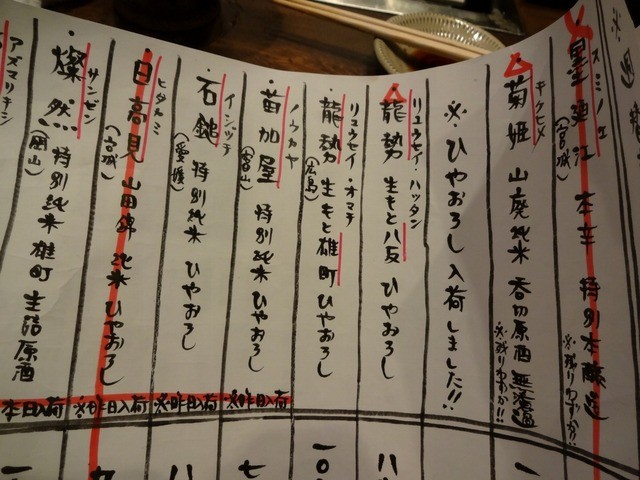 スミノエ
墨廼江 本辛 特別本醸造
(宮城)
※残りわずか!!
キクヒメ
菊姫 山廃純米 呑切原酒 無濾過
※残りわずか!!
※ひやおろし入荷しました!!
リュウセイ・ハッタン
龍勢 生もと八反 ひやおろし
リュウセイ・オマチ
龍勢 生もと雄町 ひやおろし
(広島)
ノウカヤ
苗加屋 特別純米 ひやおろし
(富山)
※昨日入荷
七
イシヅチ
石鎚 特別純米 ひやおろし
(愛媛)
※昨日入荷
八
ヒタカミ
日高見 山田錦 純米 ひやおろし
(宮城)
※昨日入荷
九
サンゼン
燦然 特別純米 雄町 生詰原酒
(岡山)
本日入荷
アズマリキシ